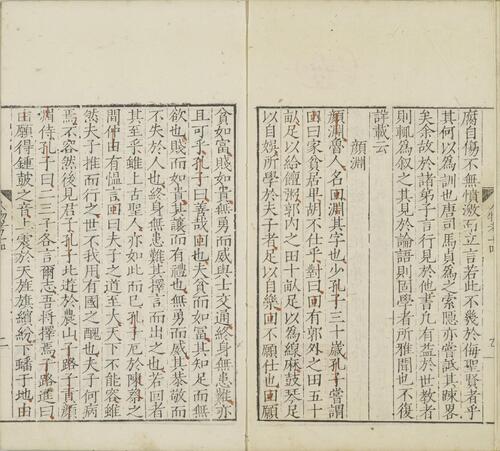 腐自傷不無憤激而立言若此不幾於侮聖賢者乎
其何以為訓也唐司馬貞為之索隱亦嘗詆其踈畧
矣余故於諸弟子言行見於他書凡有益於世教者
則輒為叙之其見於論語則固學者所雅聞也不復
詳載云
顏淵
顏淵魯人名回淵其字也少孔子三十歲孔子嘗謂
回曰家貧居卑胡不仕乎對曰回有郭外之田五十
畆足以給饘粥郭內之田十畆足以為絲麻鼓琴足
以自娛所學於夫子者足以自樂回不願仕也回願
貧如富賤如貴無勇而威與士交通終身無患難亦
且可乎孔子曰善哉回也夫貧而如富其知足而無
欲也賤而如貴其讓而有禮也無勇而威其恭敬而
不失於人也終身無患難其擇言而出之也若回者
其至乎雖上古聖人亦如此而已孔子厄於陳蔡之
間仲由有慍言回曰夫子之道至大天下不能容雖
然夫子推而行之世不我用有國之醜也夫子何病
焉不容然後見君子孔子北遊於農山子路子貢顏
淵侍孔子曰二三子各言爾志吾將擇焉子路進曰
由願得鍾鼓之音上震於天旌旗繽紛下蟠于地由